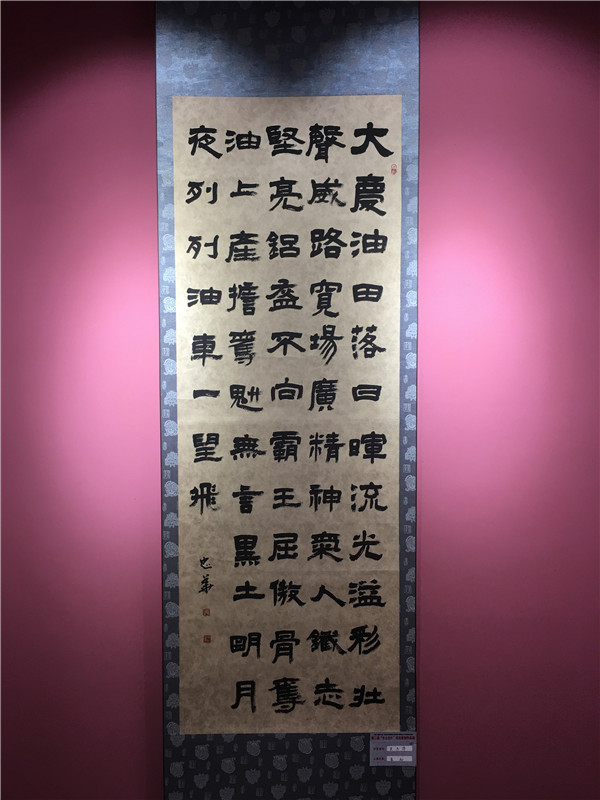 大慶油田落日暉流光溢彩壯
聲威路寬場廣精神人鐵志
堅亮鋁盔不向霸王屈傲骨奪
油上產擔奪魁無言黑土明月
夜列列油車一望飛
忠華